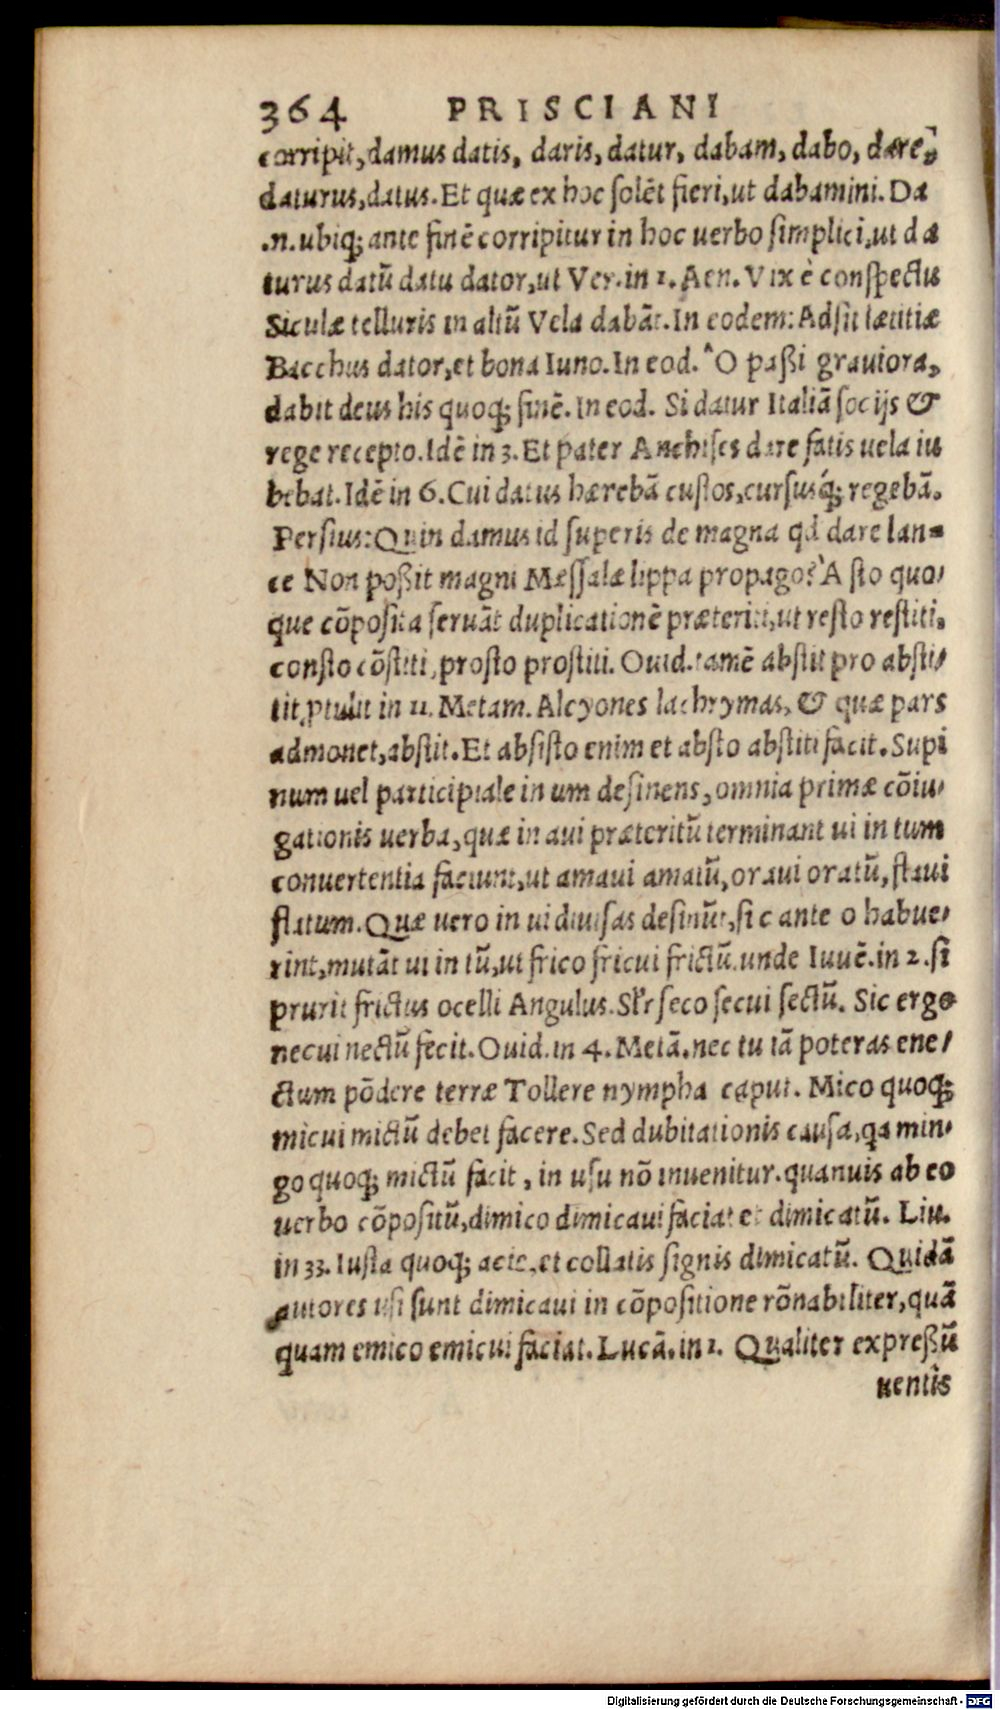 364 PRISCIANI
corripit, damus datis, daris, datur, dabam, dabo, dare,
daturus, datus. Et quæ ex hoc solẽt fieri, ut dabamini. Da
.n. ubiq; ante finẽ corripitur in hoc uerbo simplici, ut da
turus datũ datu dator, ut Ver. in 1. Aen. Vix è conspectu
Siculæ telluris in altũ Vela dabãt. In eodem: Adsit lætitiæ
Bacchus dator, et bona Iuno. In eod. O paßi grauiora,
dabit deus his quoq; finẽ. In eod. Si datur Italiã socijs &
rege recepto. Idẽ in 3. Et pater Anchises dare fatis uela iu
bebat. Idẽ in 6. Cui datus hærebã custos, cursusq́; regebã.
Persius: Quin damus id superis de magna qd dare lan-
ce Non poßit magni Messalæ lippa propago? A sto quo-
que cõposita seruãt duplicationẽ præteriti, ut resto restiti,
consto cõstiti, prosto prostiti. Ouid. tamẽ abstit pro absti-
tit ꝓtulit in 11. Metam. Alcyones lachrymas, & quæ pars
admonet, abstit. Et absisto enim et absto abstiti facit. Supi
num uel participiale in um desinens, omnia primæ cõiu-
gationis uerba, quæ in aui præteritũ terminant ui in tum
conuertentia faciunt, ut amaui amatũ, oraui oratũ, staui
statum. Quæ uero in ui diuisas desinũt, si c ante o habue-
rint, mutãt ui in tũ, ut frico fricui frictũ. unde Iuuẽ. in 2. si
prurit frictus ocelli Angulus. Slr̃ seco secui sectũ. Sic ergo
necui nectũ fecit. Ouid. in 4. Metã. nec tu iã poteras ene-
ctum põdere terræ Tollere nympha caput. Mico quoq;
micui mictũ debet facere. Sed dubitationis causa, qa min-
go quoq; mictũ facit, in usu nõ inuenitur. quanuis ab eo
uerbo cõpositũ, dimico dimicaui faciat et dimicatũ. Liu.
in 33. Iusta quoq; acie, et collatis signis dimicatũ. Quidã
autores usi sunt dimicaui in cõpositione rõnabiliter, quã
quam emico emicui faciat. Lucã. in 1. Qualiter expreßũ
uentis
Digitalisierung gefördert durch die Deutsche Forschungsgemeinschaft - DFG